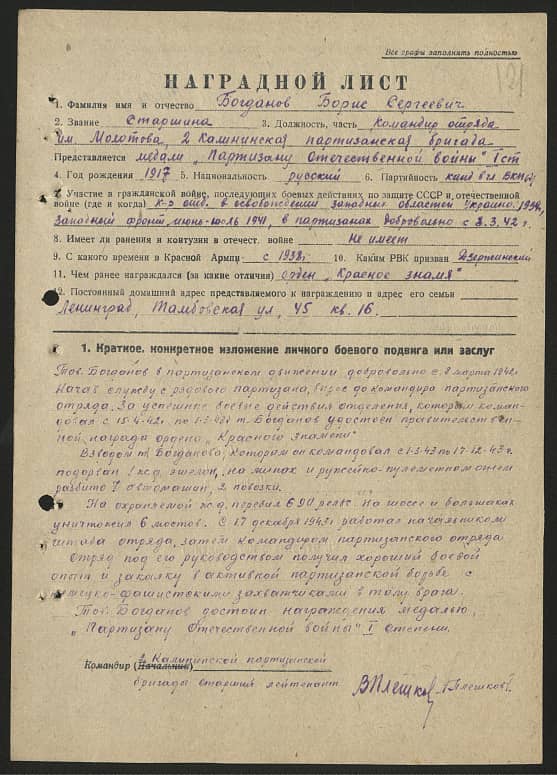 Все графы заполнять полностью
НАГРАДНОЙ ЛИСТ
1. Фамилия имя и отчество Богданов Борис Сергеевич
2. Звание Старшина 3. Должность, часть Командир отряда
им. Молотова, 2 Калининская партизанская бригада
Представляется медали „Партизану Отечественной войны" I ст
4. Год рождения 1917 5. Национальность русский 6. Партийность канд вкп(б)
7. Участие в гражданской войне, последующих боевых действиях по защите СССР и отечественной
войне (где и когда) в освобождении западных областей Украины. 1939г,
Западный фронт июнь-июль 1941, в партизанах добровольно с 8.3.42 г.
8. Имеет ли ранения и контузии в отечест. войне Не имеет
9. С какого времени в Красной Армии с 1938г. 10. Каким РВК призван Дзержинский
11. Чем ранее награждался (за какие отличия) орден „Красное знамя"
12. Постоянный домашний адрес представляемого к награждению и адрес его семьи
Ленинград, Тамбовская ул, 45 кв. 16.
1. Краткое, конкретное изложение личного боевого подвига или заслуг
Тов. Богданов в партизанском движении добровольно с 8 марта 1942г.
Начав службу с рядового партизана, вырос до командира партизанского
отряда. За успешные боевые действия отделения, которым коман-
довал с 15-4-42г. по 1-3-43г т. Богданов удостоен правительствен-
ной награды ордена „Красного Знамени"
Взводом т. Богданова, которым он командовал с 1-3-43 по 17-12-43 г.
подорван 1 ж.д. эшелон, на минах и ружейно-пулеметном огнем
разбито 7 автомашин, 2 повозки.
На охраняемой ж.д. перебил 690 рельс. На шоссе и большаках
уничтожил 6 мостов. С 17 декабря 1943г работал начальником
штаба отряда, затем командиром партизанского отряда.
Отряд под его руководством получил хороший боевой
опыт и закалку в активной партизанской борьбе с
немецко-фашистскими захватчиками в тылу врага.
Тов. Богданов достоин награждения медалью
„Партизану Отечественной войны" I степени.
Командир (Начальник) 2 Калининской партизанской
бригады старший лейтенант ВПлешков /Плешков/.